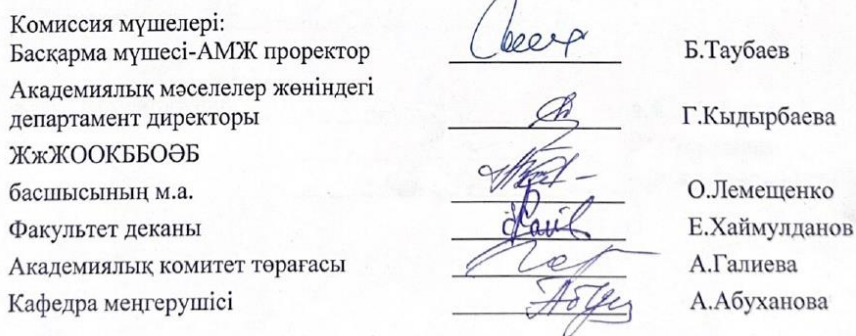 Комиссия мүшелері:
Басқарма мүшесі-АМЖ проректор Б.Таубаев
Академиялық мәселелер жөніндегі
департамент директоры Г.Кыдырбаева
ЖжЖООКББОӘБ
басшысының м.а. О.Лемещенко
Факультет деканы Е.Хаймулданов
Академиялық комитет төрағасы А.Галиева
Кафедра меңгерушісі А.Абуханова